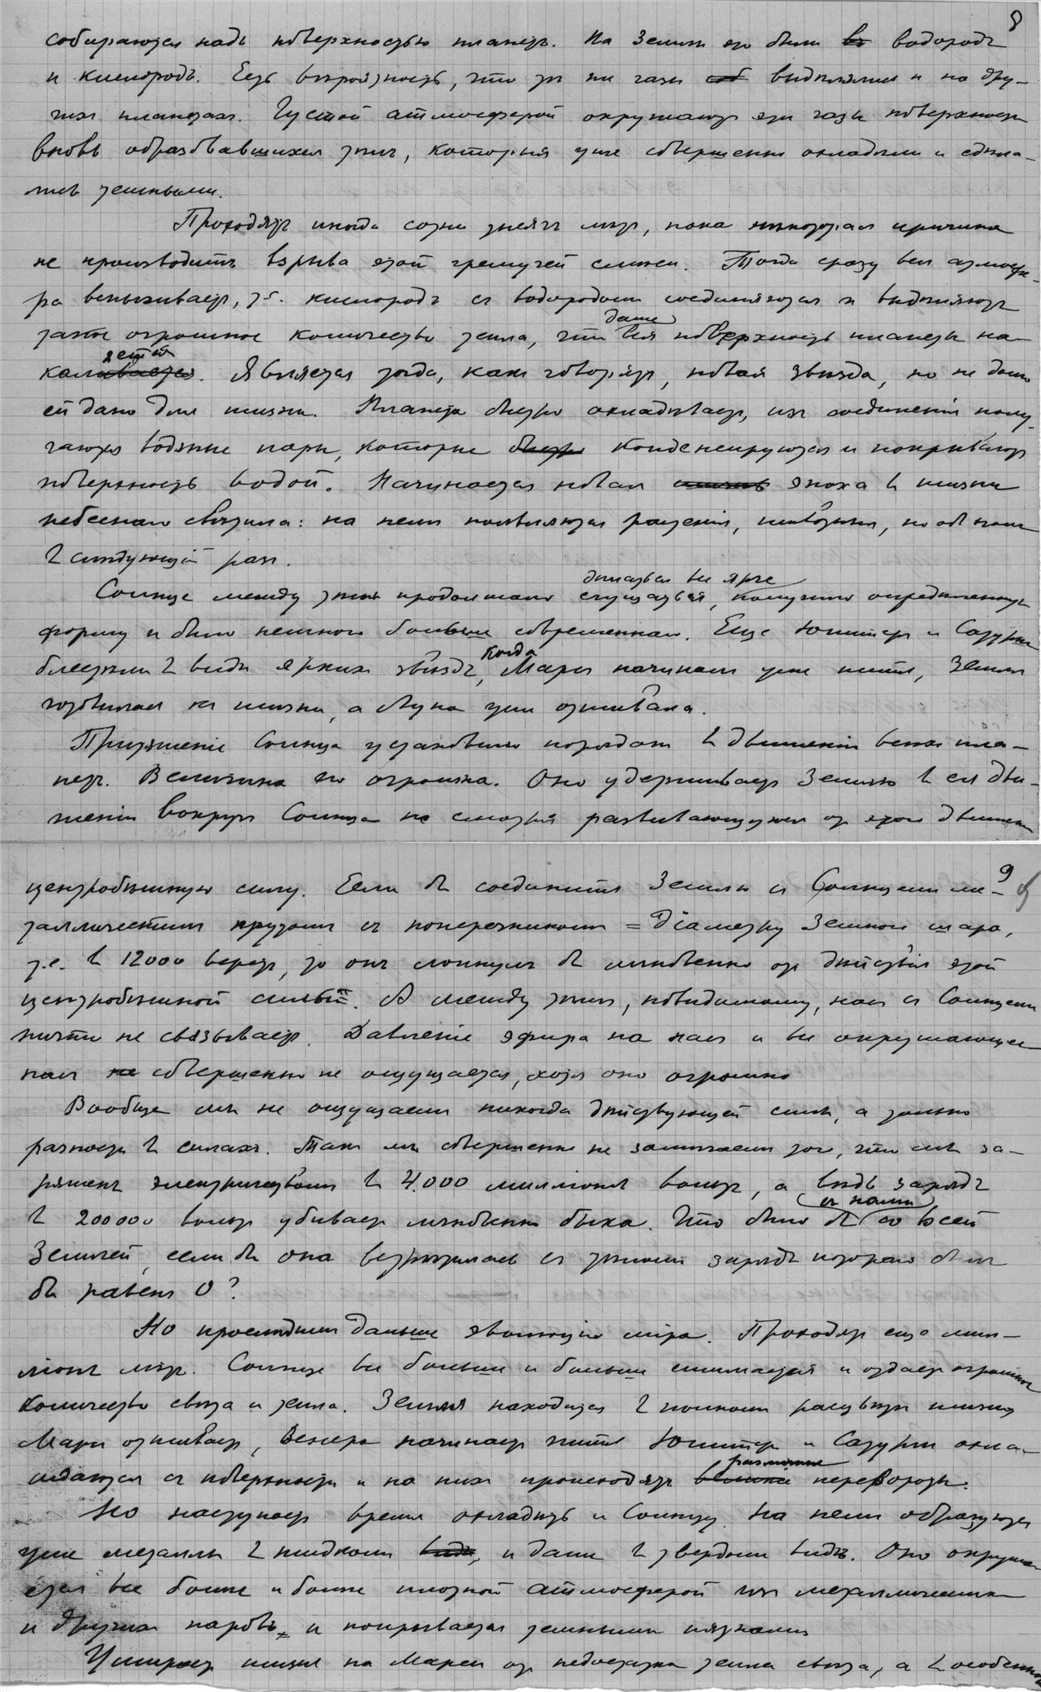 8
собираются надъ поверхностью планетъ. На Земли это были водородъ
и кислородъ. Есть вѣроятность, что эти же газы выдѣлялись и на дру-
гихъ планетахъ. Густой атмосферой окружаютъ эти газы поверхности
вновь образовавшихся тѣлъ, которыя уже совершенно охладѣли и сдѣла-
лись темными.
Проходятъ иногда сотни тысячъ лѣтъ, пока причина
не производитъ взрыва этой гремучей смѣси. Тогда сразу вся атмосфе-
ра вспыхиваетъ, т.е. кислородъ съ водородомъ соединяются и выдѣляютъ
такое огромное количество тепла, что даже вся поверхность планеты на-
каляется. Является тогда, какъ говорятъ, новая звѣзда, но не долго
ей дано для жизни. Планета быстро охлаждаетъ, изъ соединенія полу-
чаются водяные пары, которые конденсируются и покрываютъ
поверхность водой. Начинается новая эпоха въ жизни
небеснаго свѣтила: на немъ появляются растенія, животныя, но объ этомъ
въ слѣдующій разъ.
дѣлаться все ярче
Солнце между тѣмъ продолжало сгущаться, получило опредѣленную
форму и было немного больше современнаго. Еще Юпитеръ и Сатурнъ
блестѣли въ видѣ яркихъ звѣздъ, когда Марсъ начиналъ уже жить, Земля
готовилась къ жизни, а Луна уже отживала.
Притяженіе Солнца установило порядокъ въ движеніи всѣхъ пла-
нетъ. Величина его огромна. Оно удерживаетъ Землю въ ея дви-
женіи вокругъ Солнца не смотря развивающуюся отъ этого движенія
9
центробѣжную силу. Если бъ соединить Землю съ Солнцемъ ме-
таллическимъ прутомъ съ поперечникомъ = діаметру Земного шара,
т.е. въ 12000 верстъ, то онъ лопнулъ бъ мгновенно отъ дѣйствія этой
центробѣжной силы. А между тѣмъ, повидимому, насъ съ Солнцемъ
ничто не связываетъ. Давленіе эфира на насъ и все окружающее
насъ совершенно не ощущается, хотя оно огромно
Вообще мы не ощущаемъ никогда дѣйствующей силы, а только
разность въ силахъ. Такъ мы совершенно не замѣчаемъ того, что мы за-
ряжены электричествомъ въ 4.000 милліоновъ вольтъ, а вѣдь зарядъ
въ 200000 вольтъ убиваетъ мгновенно быка. Что было бъ (съ нами) со всей
Землей, если бъ она встрѣтилась съ тѣломъ зарядъ котораго былъ
бъ равенъ 0?
Но прослѣдимъ дальше эволюцію міра. Проходятъ еще мил-
ліоны лѣтъ. Солнце все больше и больше сжимается и отдаетъ огромное
количество свѣта и тепла. Земля находится въ полномъ расцвѣтѣ жизни
Марсъ отживаетъ, Венера начинаетъ жить Юпитеръ и Сатурнъ охла-
ждаются съ поверхности и на нихъ происходятъ различные перевороты.
Но наступаетъ время охладѣть и Солнцу. На немъ образуются
уже металлы въ жидкомъ, и даже въ твердомъ видѣ. Оно окружа-
ется все болѣе и болѣе плотной атмосферой изъ металлическихъ
и другихъ паровъ и покрывается темными пятнами
Умираетъ жизнь на Марсѣ отъ недостатка тепла свѣта, а въ особенности